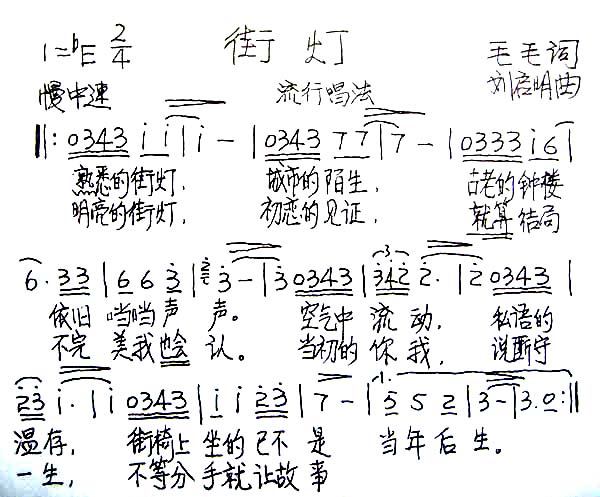 1=♭E 2/4 街灯 毛毛词
慢中速 流行唱法 刘启明曲
‖: 0343 i i | i - | 0343 7 7 | 7 - | 0333 i 6 |
熟悉的街灯, 城市的陌生, 古老的钟楼
明亮的街灯, 初恋的见证, 就算结局
6. 33 | 6 6 3 | 3 - | 3 0343 | 342 2. | 2 0343 |
依旧 当当声 声。 空气中 流 动, 私语的
不完 美我也会 认。 当初的 你我, 说断守
23 i. | i 0343 | i i 23 | 7 - | 1. 5 5 2 | 3 - | 3. 0 :‖
温存, 街椅上 坐的已不 是 当年后生。
一生, 不等分 手就让故 事